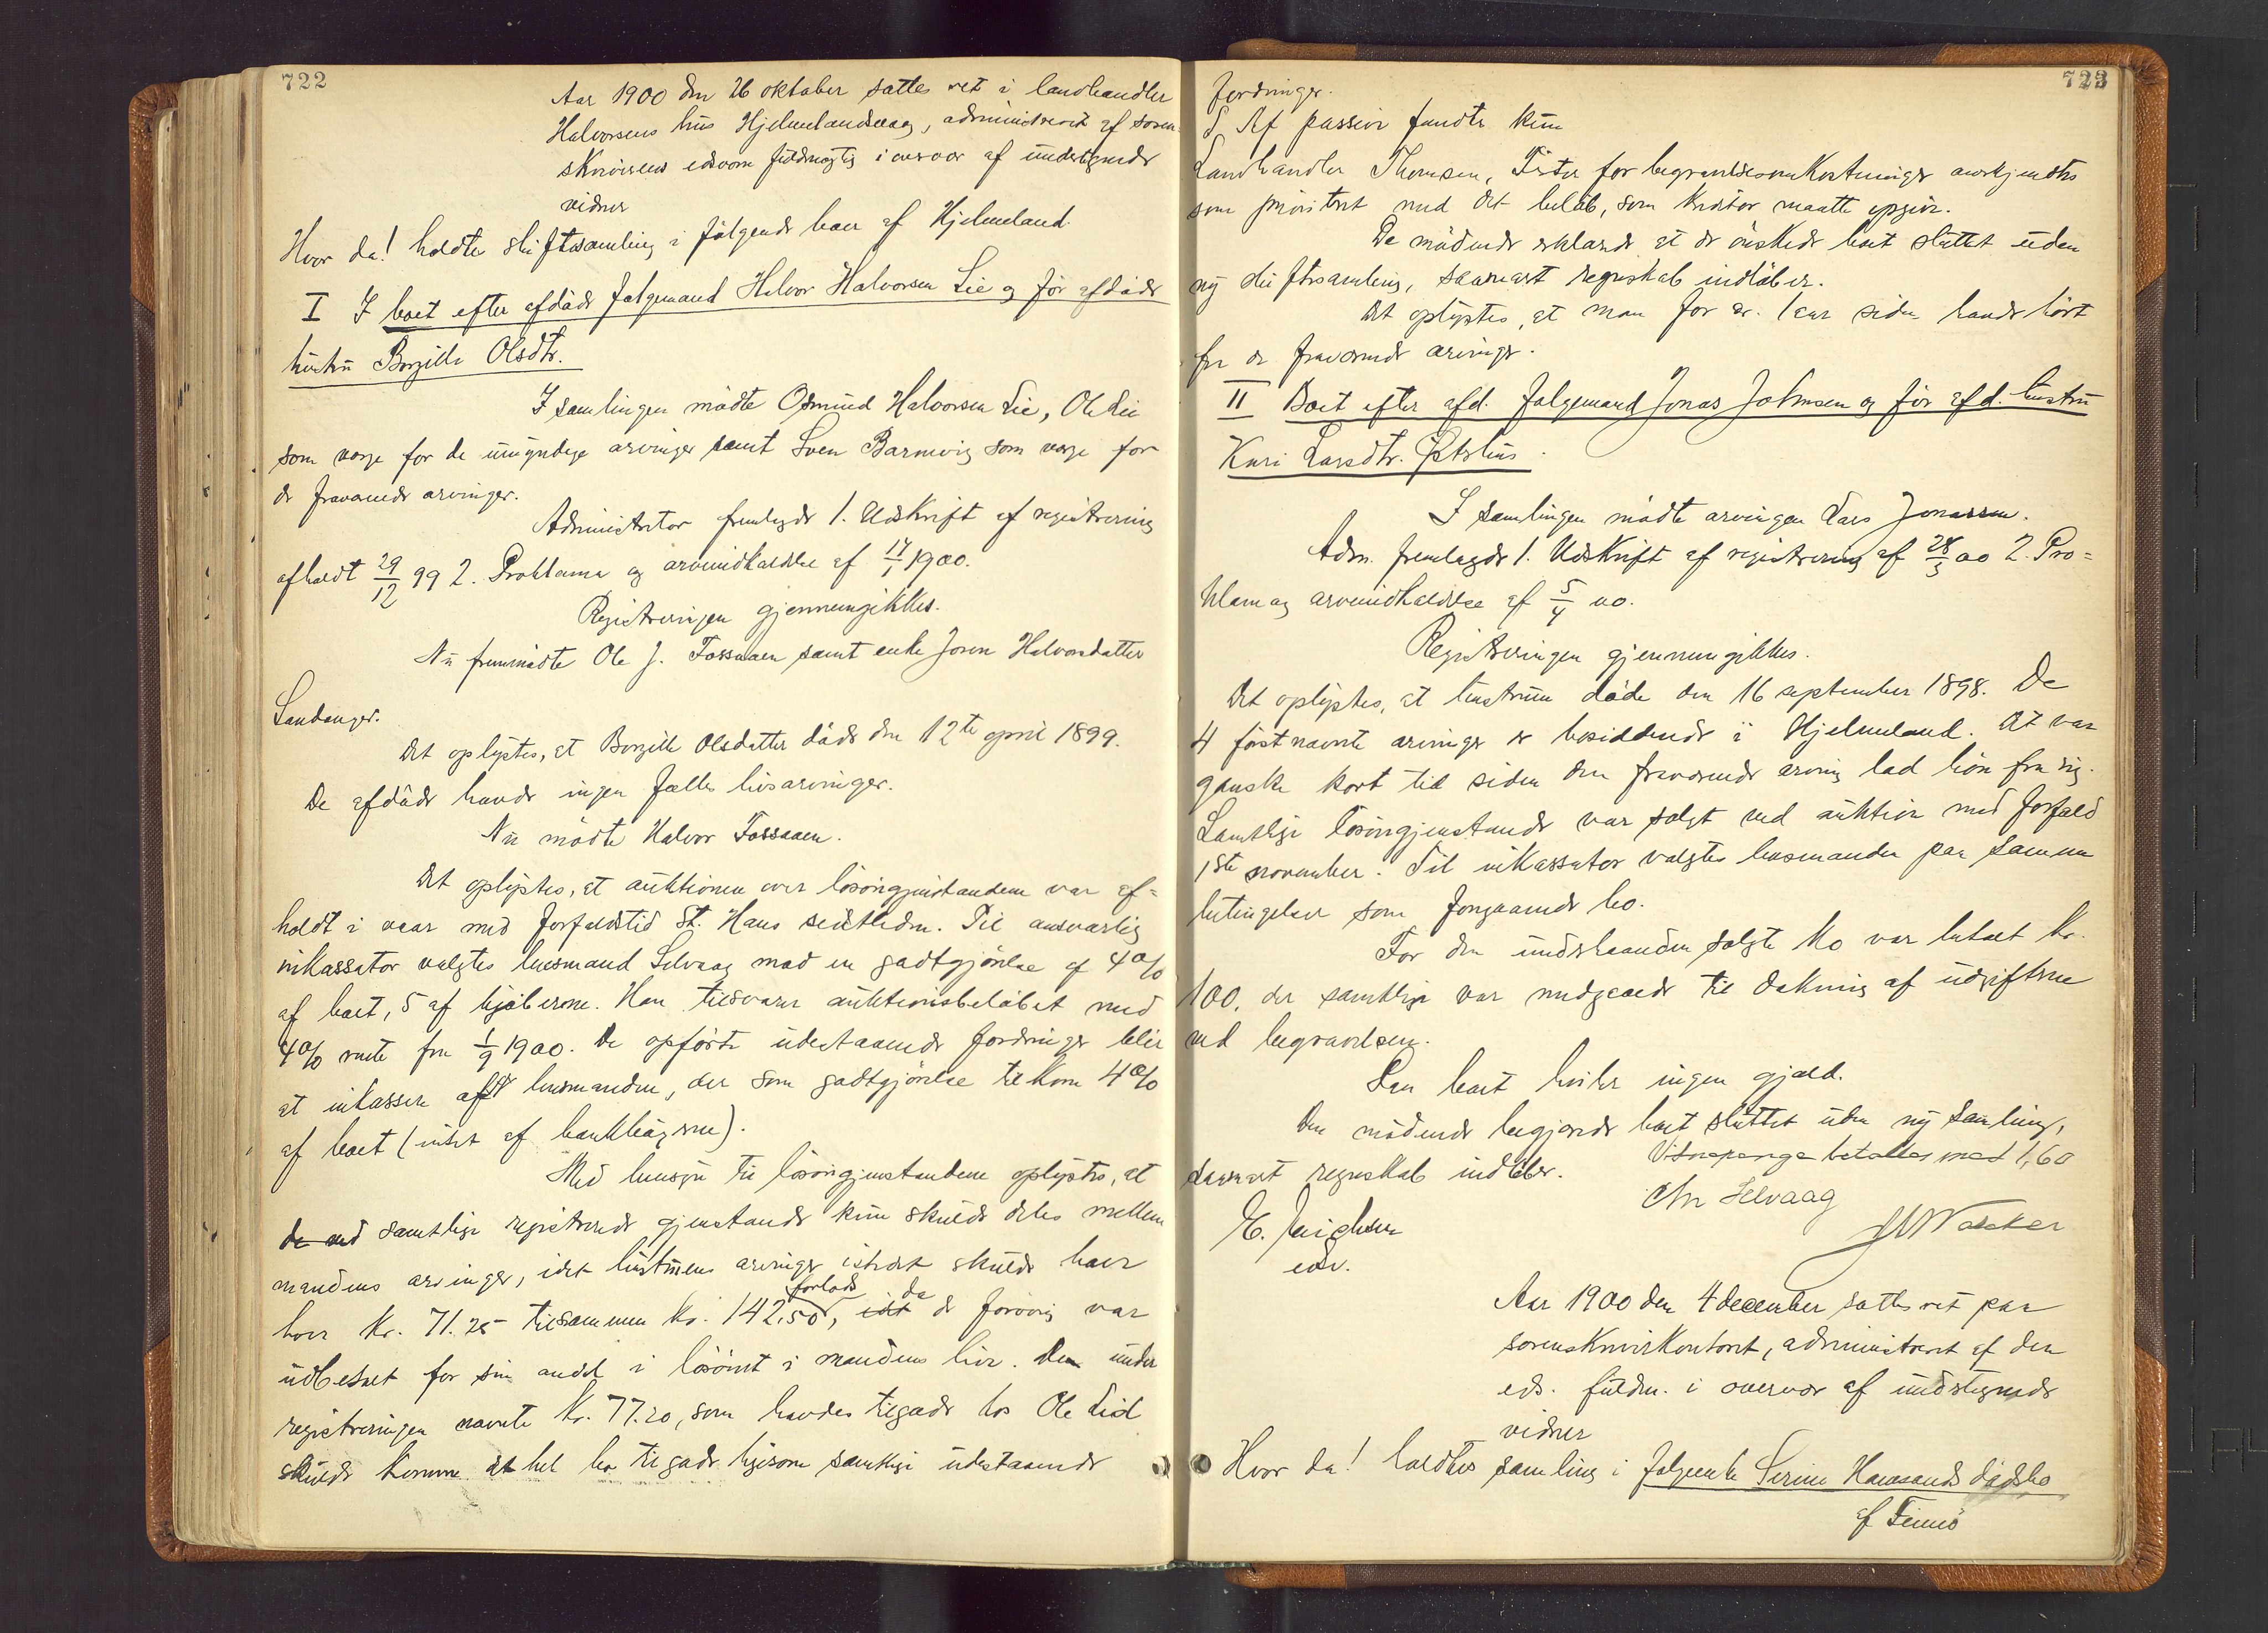 722
Aar 1900 den 26 oktober sattes ret i landhandler
Halvorsens hus Hjelmelandsvaag, administreret af soren-
skriverens edsvorn fuldmægtig i overvær af undertegnede
vidner
Hvor da! holdtes skiftesamling i følgende boer af Hjelmeland
I I boet efter afdøde folgemand Halvor Halvorsen Lie og før afdøde
hustru Borgille Olsdtr.
I samlingen mødte Osmund Halvorsen Lie, Ole Lie
som verge for de umyndige arvinger samt Sven Barmvig som verge for
de fraværende arvinger.
Administrator fremlagde 1. Udskrift af registrering
afholdt 29/12 99 2. Proklama og arveindkaldelse af 17/1 1900.
Registreringen gjennemgikkes.
Nu fremmødte Ole J. Fossaaen samt enke Joren Halvorsdatter
Landanger.
Det oplystes, at Borgille Olsdatter døde den 12te april 1899.
De afdøde havde ingen fælles livsarvinger.
Nu mødte Halvor Fossaaen.
Det oplystes, at auktionen over løsøregjenstandene var af=
holdt i vaar med forfaldstid St. Hans sidstleden. Til ansvarlig
inkassator valgtes lensmand Selvaag mod en godtgjörelse af 4%
af boet, 5 af kjøberne. Han tilsvarer auktionsbeløbet med
4% rente fra 1/9 1900. De opførte udestaaende fordringer blir
at inkassere af lensmanden, der som godtgjörelse tilkom 4%
af boet (intet af bankbøgerne).
Med hensyn til løsøregjenstandene oplystes, at
de ved samtlige registrerede gjenstande kun skulde deles mellem
mandens arvinger, idet hustruens arvinger istedet skulde have
hver kr. 71.25 tilsammen kr. 142.50, idt de forøvrig var
forlods da
udbetalt for sin andel i løsöret i mandens live. Den under
registreringen nævnte kr. 77.20, som havdes tilgode hos Ole Lid
skulde komme det hel bo tilgode ligesom samtlige udestaaende
723
fordringer.
Af passiver fandtes kun
Landhandler Thomsen, Fister for begravelsesomkostninger anerkjendtes
som prioritert med det beløb, som kreditor maatte opgive.
De mødende erklærede at de ønskede boet sluttet uden
ny skiftesamling, saasnart regnskab indløber.
Det oplystes, at man for ca. 1 aar siden havde hört
fra de fraværende arvinger.
II Boet efter afd. folgemand Jonas Johnsen og før afd. hustru
Kari Larsdtr. Østerhus.
I samlingen mødte arvingen Lars Jonassen.
Adm. fremlagde 1. Udskrift af registrering af 28/3 00 2. Pro=
klam og arveindkaldelse af 5/4 00.
Registreringen gjennemgikkes.
Det oplystes, at hustruen døde den 16 september 1898. De
4 först nævnte arvinger er besiddende i Hjelmeland. Det var
ganske kort tid siden den fraværende arving lod høre fra sig.
Samtlige løsøregjenstande var solgt ved auktion med forfald
1ste november. Til inkassator valgtes lensmanden paa samme
betingelser som foregaaende bo.
For den underhaanden solgte ko var betalt kr.
100, der samtlige var medgaaede til dækning af udgifterne
ved begravelsen.
Paa boet hviler ingen gjæld.
Den mødende begjærede boet sluttet uden ny samling,
saasnart regnskab indløber.
Vidnepenge betaltes med 1,60
Chr Selvaag
E. eds.
Aar 1900 den 4 december sattes ret paa
sorenskriverkontoret, administreret af den
eds. fuldm. i overvær af undertegnede
vidner
Hvor da! holdtes samling i folgeenke Serine Havsands dødsbo
af Finnø